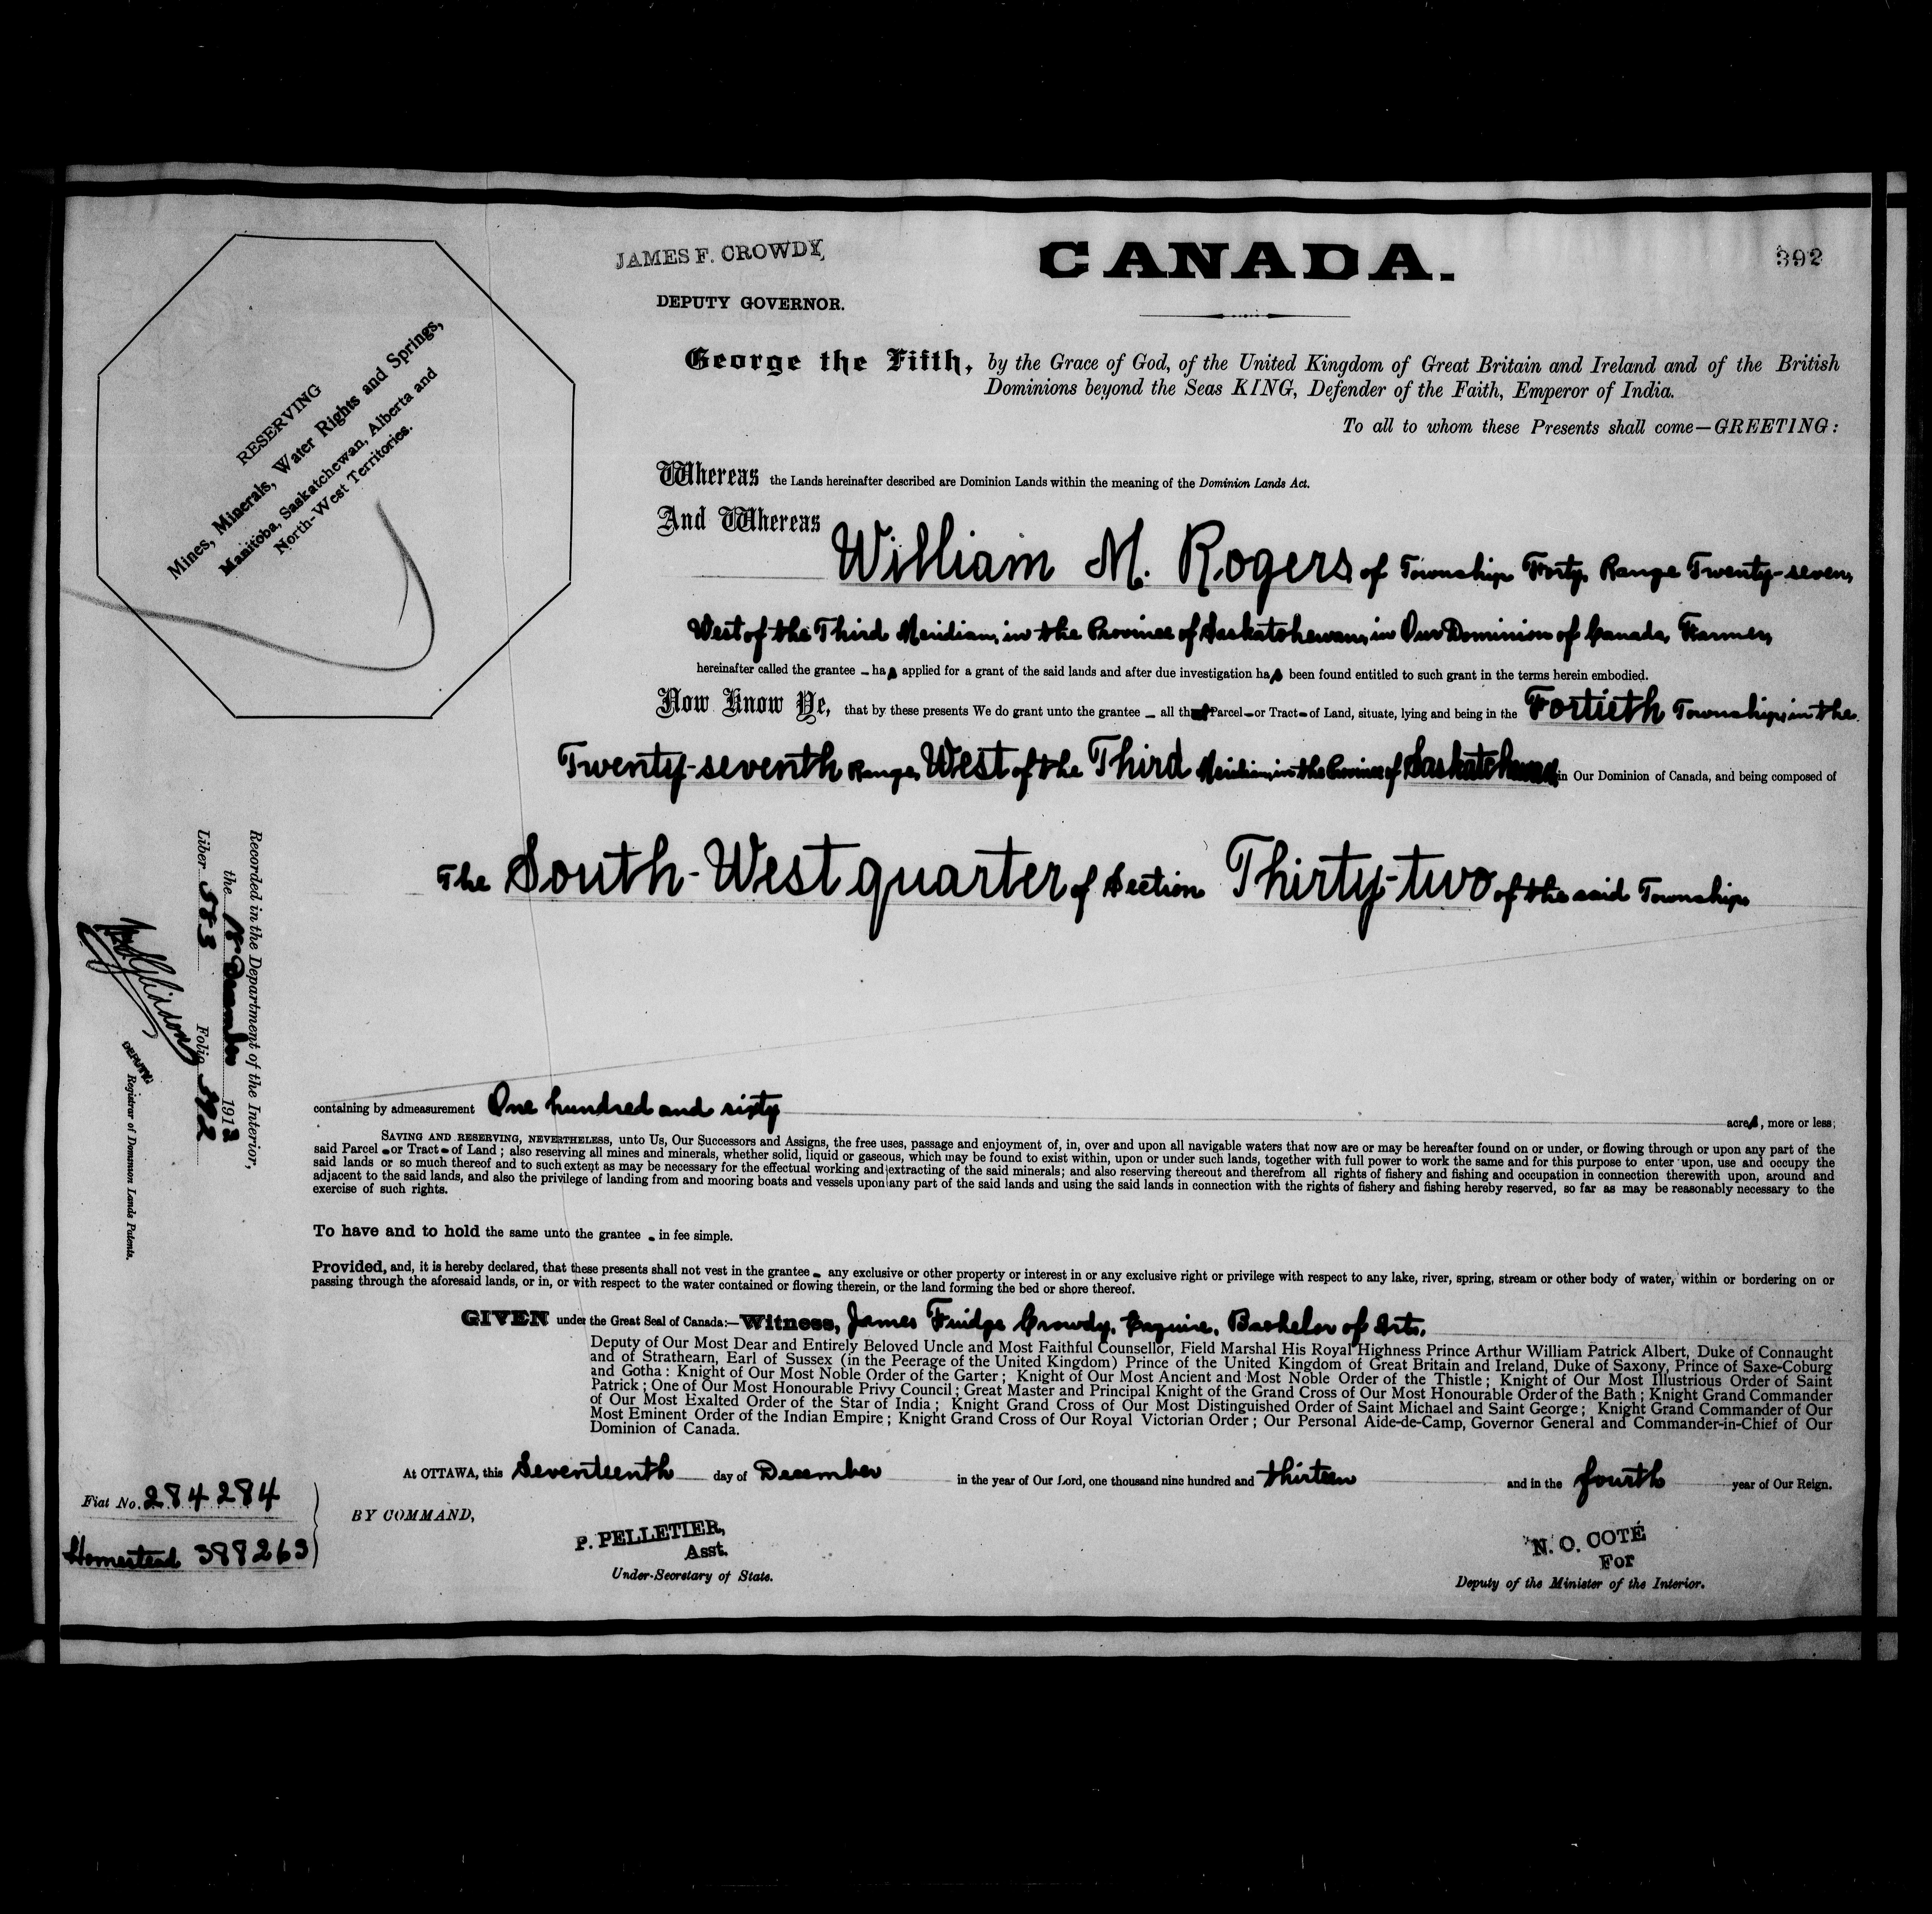 JAMES F. CROWDY,
DEPUTY GOVERNOR.
CANADA.
392
RESERVING
Mines, Minerals, Water Rights and Springs,
Manitoba, Saskatchewan, Alberta and
North-West Territories.
George the Fifth, by the Grace of God, of the United Kingdom of Great Britain and Ireland and of the British
Dominions beyond the Seas KING, Defender of the Faith, Emperor of India.
To all to whom these Presents shall come—GREETING:
Whereas the Lands hereinafter described are Dominion Lands within the meaning of the Dominion Lands Act.
And Whereas
William M. Rogers of Township Forty, Range Twenty-seven,
West of the Third Meridian, in the Province of Saskatchewan, in Our Dominion of Canada, Farmer,
hereinafter called the grantee – has applied for a grant of the said lands and after due investigation has been found entitled to such grant in the terms herein embodied.
Now Know Ye, that by these presents We do grant unto the grantee – all that Parcel – or Tract – of Land, situate, lying and being in the Fortieth Township, in the
Twenty-seventh Range, West of the Third Meridian, in the Province of Saskatchewan, in Our Dominion of Canada, and being composed of
The South-West quarter of Section Thirty-two of the said Township
containing by admeasurement One hundred and sixty acres, more or less;
SAVING AND RESERVING, NEVERTHELESS, unto Us, Our Successors and Assigns, the free uses, passage and enjoyment of, in, over and upon all navigable waters that now are or may be hereafter found on or under, or flowing through or upon any part of the
said Parcel – or Tract – of Land; also reserving all mines and minerals, whether solid, liquid or gaseous, which may be found to exist within, upon or under such lands, together with full power to work the same and for this purpose to enter upon, use and occupy the
said lands or so much thereof and to such extent as may be necessary for the effectual working and extracting of the said minerals; and also reserving thereout and therefrom all rights of fishery and fishing and occupation in connection therewith upon, around and
adjacent to the said lands, and also the privilege of landing from and mooring boats and vessels upon any part of the said lands and using the said lands in connection with the rights of fishery and fishing hereby reserved, so far as may be reasonably necessary to the
exercise of such rights.
To have and to hold the same unto the grantee – in fee simple.
Provided, and, it is hereby declared, that these presents shall not vest in the grantee – any exclusive or other property or interest in or any exclusive right or privilege with respect to any lake, river, spring, stream or other body of water, within or bordering on or
passing through the aforesaid lands, or in, or with respect to the water contained or flowing therein, or the land forming the bed or shore thereof.
GIVEN under the Great Seal of Canada:—Witness, James Fridge Crowdy, Esquire, Bachelor of Arts,
Deputy of Our Most Dear and Entirely Beloved Uncle and Most Faithful Counsellor, Field Marshal His Royal Highness Prince Arthur William Patrick Albert, Duke of Connaught
and of Strathearn, Earl of Sussex (in the Peerage of the United Kingdom) Prince of the United Kingdom of Great Britain and Ireland, Duke of Saxony, Prince of Saxe-Coburg
and Gotha: Knight of Our Most Noble Order of the Garter; Knight of Our Most Ancient and Most Noble Order of the Thistle; Knight of Our Most Illustrious Order of Saint
Patrick; One of Our Most Honourable Privy Council; Great Master and Principal Knight of the Grand Cross of Our Most Honourable Order of the Bath; Knight Grand Commander
of Our Most Exalted Order of the Star of India; Knight Grand Cross of Our Most Distinguished Order of Saint Michael and Saint George; Knight Grand Commander of Our
Most Eminent Order of the Indian Empire; Knight Grand Cross of Our Royal Victorian Order; Our Personal Aide-de-Camp, Governor General and Commander-in-Chief of Our
Dominion of Canada.
At OTTAWA, this Seventeenth day of December in the year of Our Lord, one thousand nine hundred and thirteen and in the fourth year of Our Reign.
BY COMMAND,
P. PELLETIER,
Asst.
Under-Secretary of State.
N. O. COTÉ
For
Deputy of the Minister of the Interior.
Recorded in the Department of the Interior,
the December 1913
Liber 583 Folio 392
DEPUTY
Registrar of Dominion Lands Patents.
Fiat No. 284284
Homestead 388263